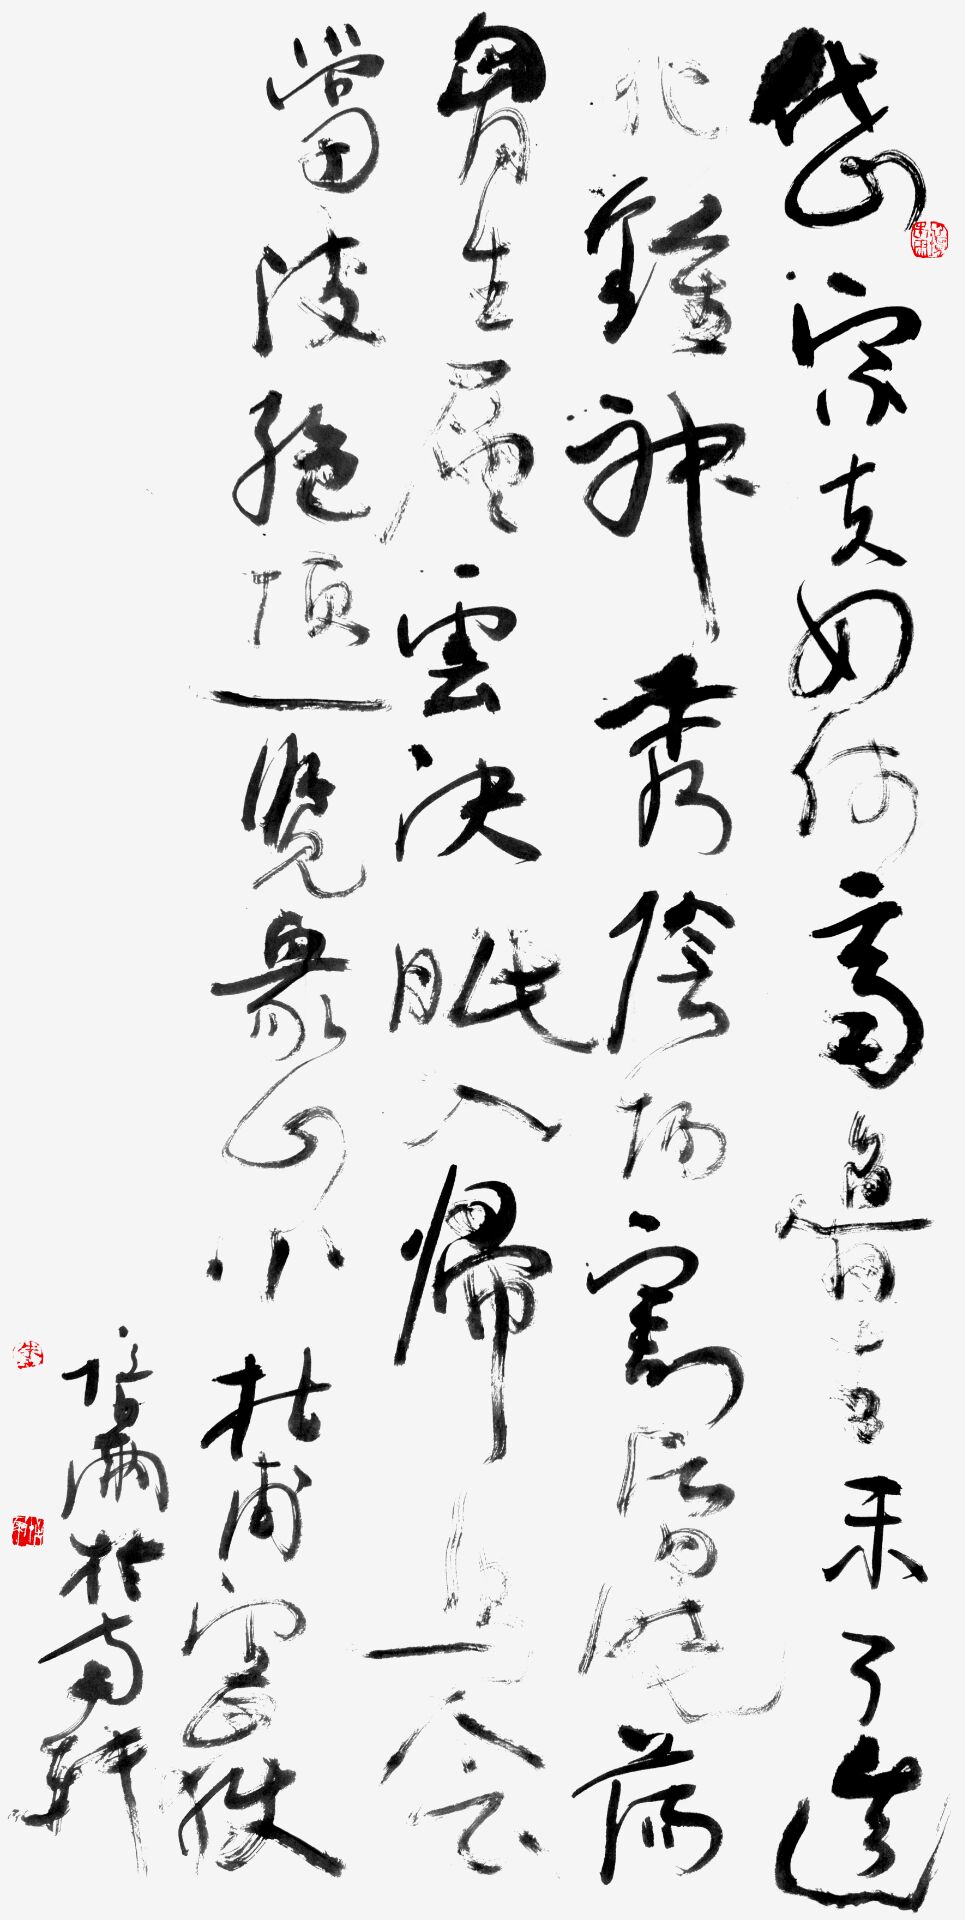 岱宗夫如何齊魯青未了造
化鍾神秀陰陽割昏曉蕩
胷生層雲決眥入歸鳥會
當凌絶頂一覽衆山小杜甫望嶽
於南軒